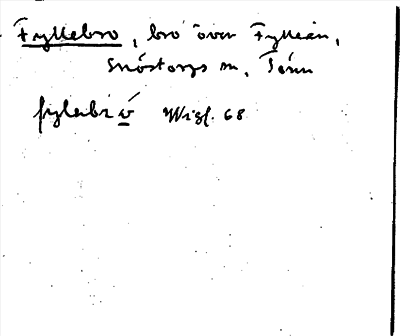 Fyllebro, bro över Fylleån,
Snöstorps sn, Tönn
fylebr ó Wigf. 68